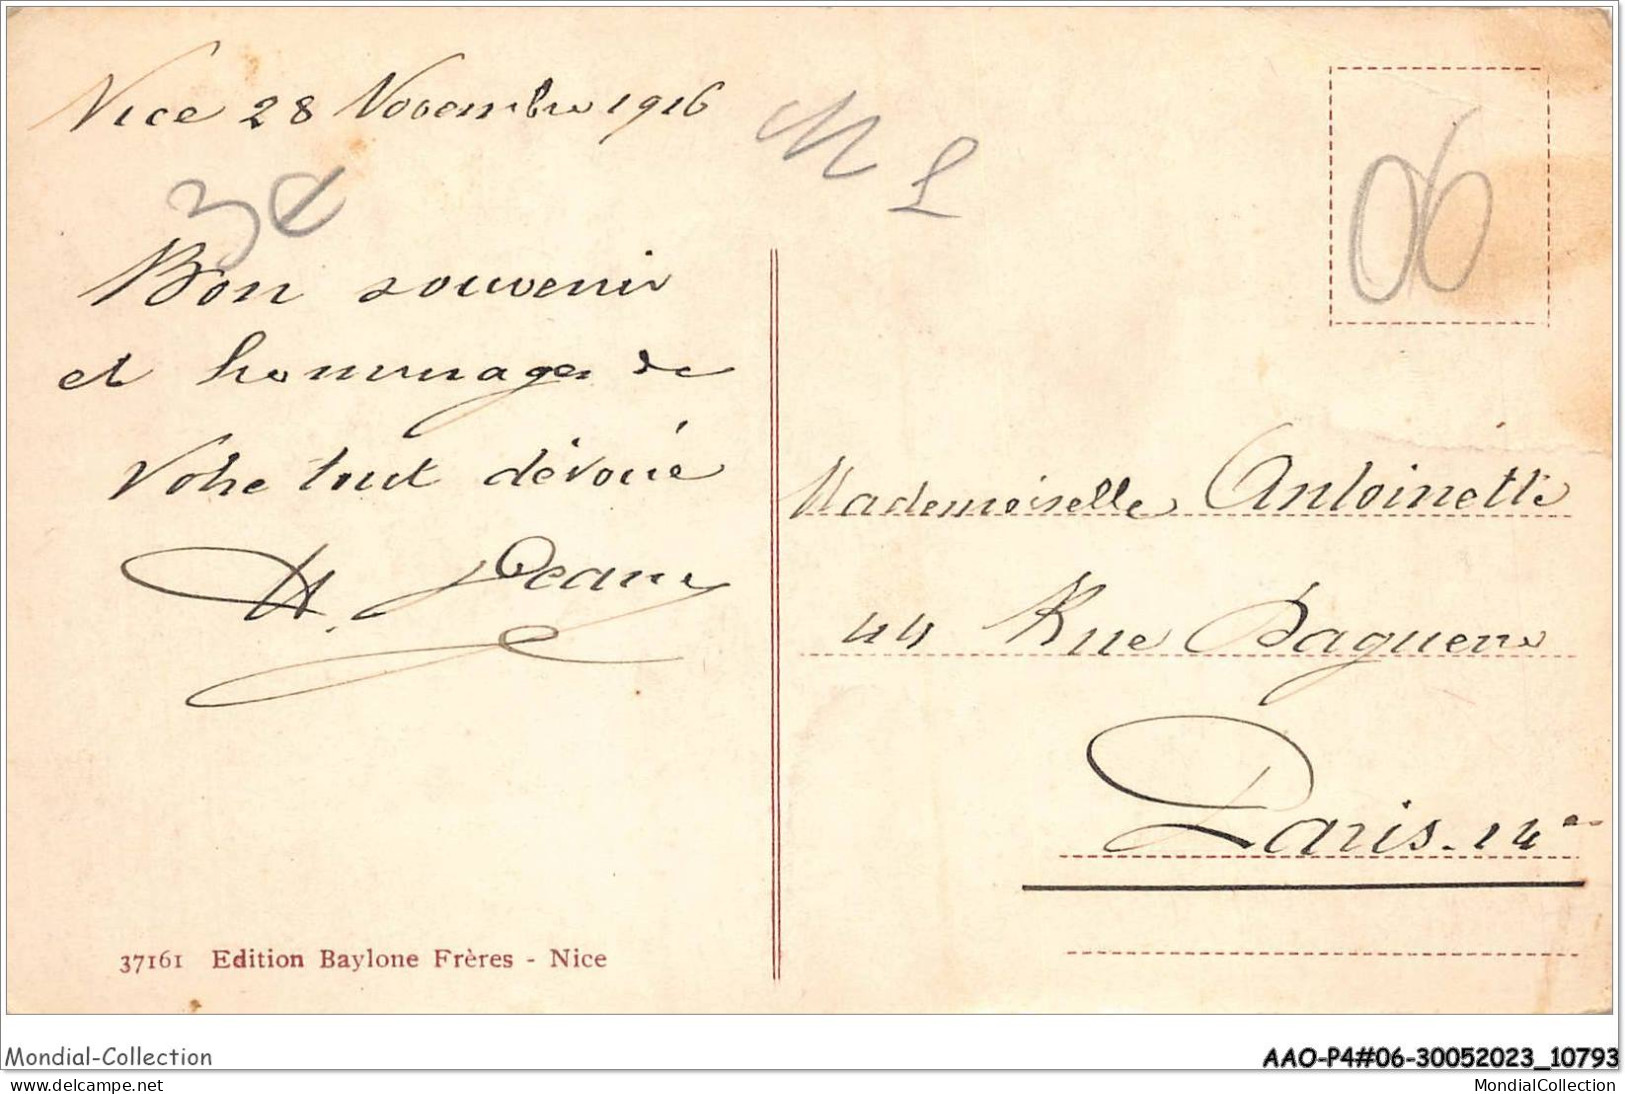 Nice 28 Novembre 1916
ML
3€
06
Bon souvenir
et hommages de
Votre tout dévoué
H. Jeanne
Mademoiselle Antoinette
44 Rue Daguerre
Paris. 14me
37161 Edition Baylone Frères - Nice
Mondial-Collection
AAO-P4#06-30052023_10793
delcampe.net
MondialCollection